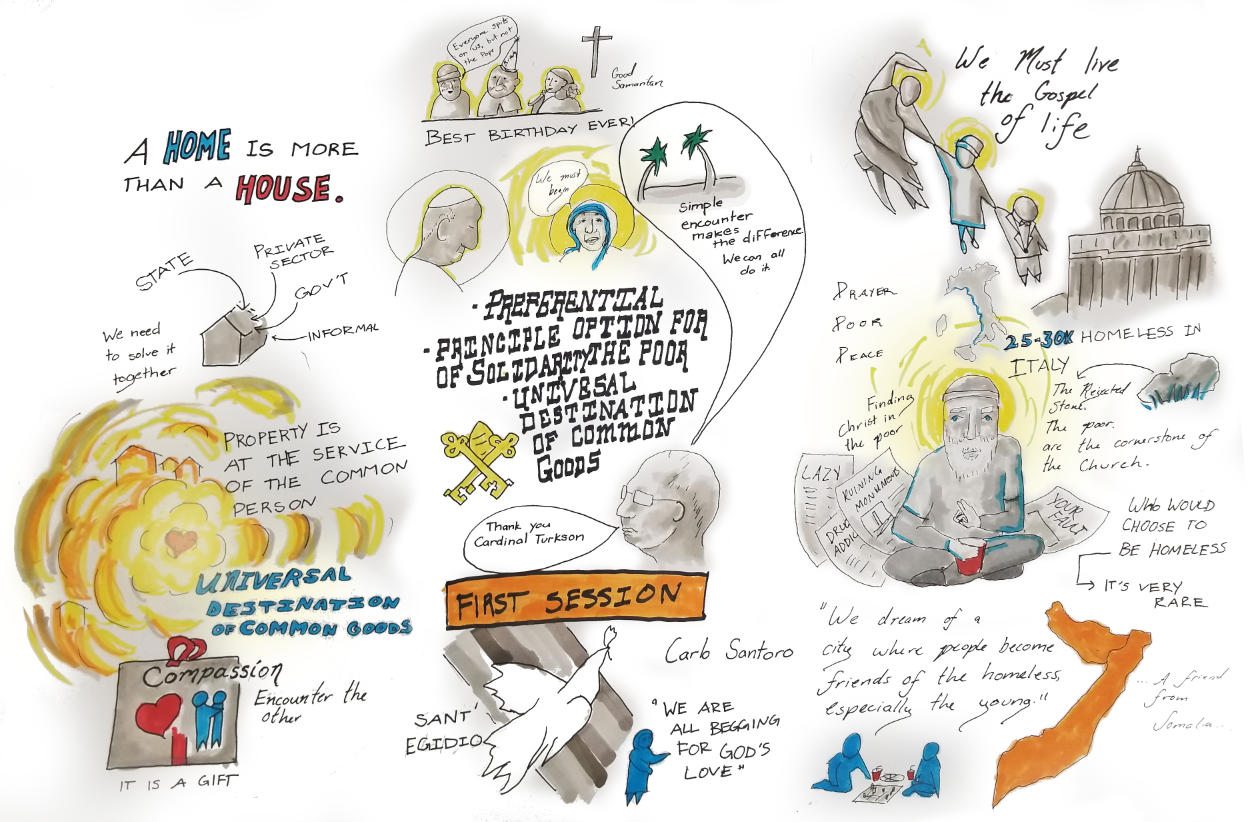 A HOME IS MORE
THAN A HOUSE.
STATE
PRIVATE
SECTOR
GOV'T
INFORMAL
We need
to solve it
together
PROPERTY IS
AT THE SERVICE
OF THE COMMON
PERSON
UNIVERSAL
DESTINATION
OF COMMON GOODS
Compassion
Encounter the
other
IT IS A GIFT
Everyone spits
on us, but not
the Pope
Good
Samaritan
BEST BIRTHDAY EVER!
We must
begin
Simple
encounter
makes
the difference
We can all
do it
· PREFERENTIAL
· PRINCIPLE OPTION FOR
OF SOLIDARITY THE POOR
· UNIVERSAL
DESTINATION
OF COMMON
GOODS
Thank you
Cardinal Turkson
FIRST SESSION
SANT'
EGIDIO
Carlo Santoro
"WE ARE
ALL BEGGING
FOR GOD'S
LOVE"
We Must live
the Gospel
of life
PRAYER
POOR
PEACE
25-30K HOMELESS IN
ITALY
Finding
Christ in
the poor
The Rejected
Stone.
The poor.
are the cornerstone of
the Church.
LAZY
RUINING
MONUMENTS
DRUG
ADDIC
YOUR
FAULT
WHO WOULD
CHOOSE TO
BE HOMELESS
IT'S VERY
RARE
"We dream of a
city where people become
friends of the homeless,
especially the young."
... A friend
from
Somalia...